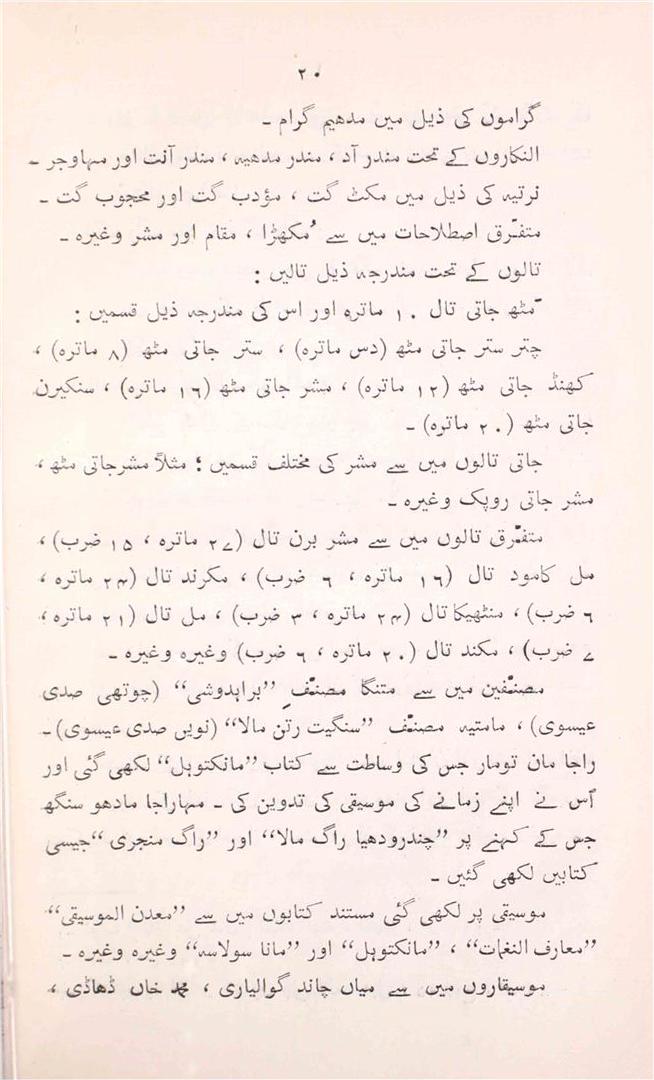 ۲۰
گراموں کی ذیل میں مدھیم گرام ۔
النکاروں کے تحت مندر آد ، مندر مدھیہ ، مندر آنت اور مہاوجر ۔
نرتیہ کی ذیل میں مکٹ گت ، مؤدب گت اور محجوب گت ۔
متفرّق اصطلاحات میں سے مُکھڑا ، مقام اور مشر وغیرہ ۔
تالوں کے تحت مندرجہ ذیل تالیں :
مَٹھ جاتی تال ۱۰ ماترہ اور اس کی مندرجہ ذیل قسمیں :
چتر ستر جاتی مٹھ (دس ماترہ) ، ستر جاتی مٹھ (۸ ماترہ) ،
کھنڈ جاتی مٹھ (۱۲ ماترہ) ، مشر جاتی مٹھ (۱۶ ماترہ) ، سنکیرن
جاتی مٹھ (۲۰ ماترہ) ۔
جاتی تالوں میں سے مشر کی مختلف قسمیں ؛ مثلاً مشرجاتی مٹھ ،
مشر جاتی روپک وغیرہ ۔
متفرّق تالوں میں سے مشر برن تال (۲۷ ماترہ ، ۱۵ ضرب) ،
مل کامود تال (۱۶ ماترہ ، ۶ ضرب) ، مکرند تال (۲۴ ماترہ ،
۶ ضرب) ، منٹھیکا تال (۲۴ ماترہ ، ۳ ضرب) ، مل تال (۲۱ ماترہ ،
۷ ضرب) ، مکند تال (۲۰ ماترہ ، ۶ ضرب) وغیرہ وغیرہ ۔
مصنّفین میں سے متنگا مصنّفِ ”براہدوشی“ (چوتھی صدی
عیسوی) ، مامتیہ مصنّف ”سنگیت رتن مالا“ (نویں صدی عیسوی) ۔
راجا مان تومار جس کی وساطت سے کتاب ”مانکتوہل“ لکھی گئی اور
اُس نے اپنے زمانے کی موسیقی کی تدوین کی ۔ مہاراجا مادھو سنگھ
جس کے کہنے پر ”چندرودھیا راگ مالا“ اور ”راگ منجری“ جیسی
کتابیں لکھی گئیں ۔
موسیقی پر لکھی گئی مستند کتابوں میں سے ”معدن الموسیقی“
”معارف النغمات“ ، ”مانکتوہل“ اور ”مانا سولاسہ“ وغیرہ وغیرہ ۔
موسیقاروں میں سے میاں چاند گوالیاری ، محمد خاں ڈھاڈی ،